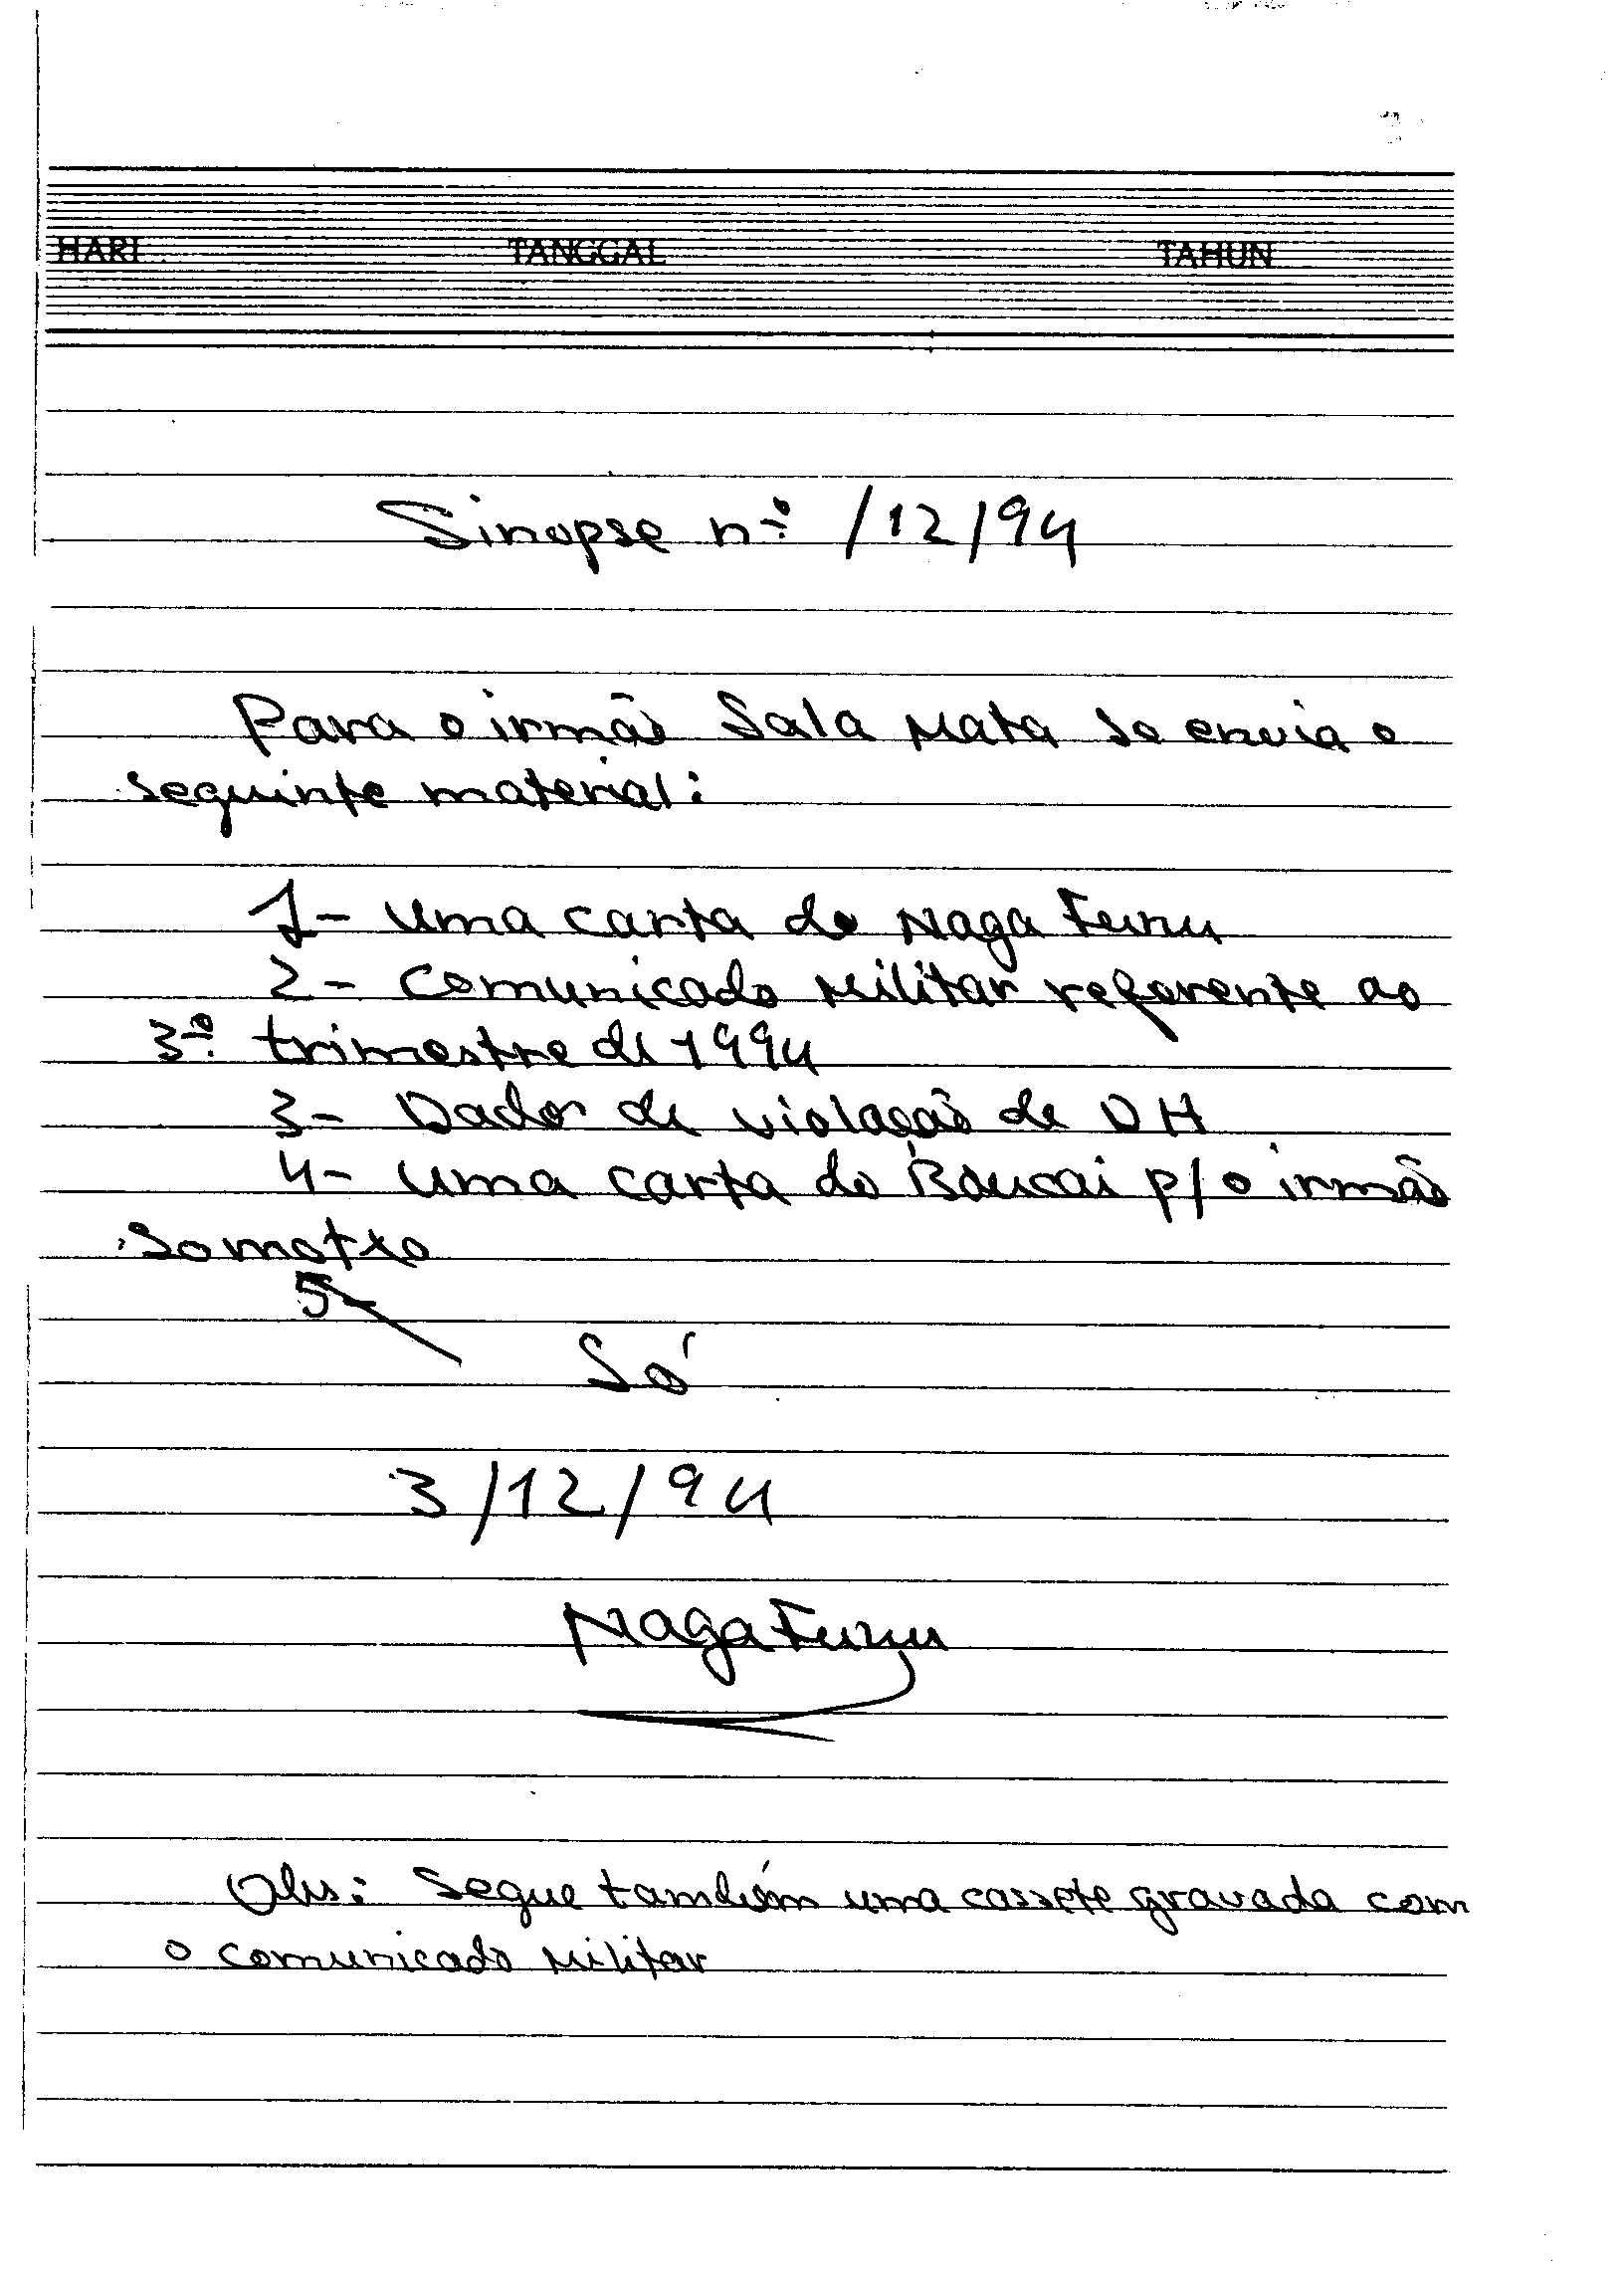 HARI TANGGAL TAHUN
Sinopse nº /12/94
Para o irmão Sala Mata se envia o
seguinte material:
1- Uma carta do Naga Furu
2- Comunicado Militar referente ao
3º trimestre de 1994
3- Dados de violação de DH
4- Uma carta do Boucai p/o irmão
Somotxo
5-
Só
3/12/94
Naga Furu
Obs: Segue também uma cassete gravada com
o comunicado Militar